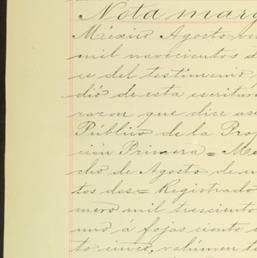 Nota marg
México Agosto ve
mil novecientos d
ce del testimonio
dió de esta escritur
razon que dice as
Público de la Pro
ción Primera = Me
cho de Agosto de m
tos dos = Registrado
mero mil trescient
uno á fojas ciento
to cinco, volúmen t